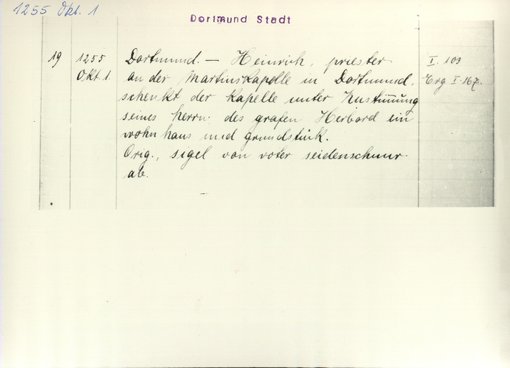 1255 Okt. 1
Dortmund Stadt
19 1255 Dortmund. — Heinrich, priester I 109
Okt. 1 an der Martinskapelle in Dortmund. Erg I 167.
schenkt der kapelle unter Zustimmung
seines herrn des grafen Herbord ein
wohnhaus und grundstück.
Orig., sigel von roter seidenschnur
ab.